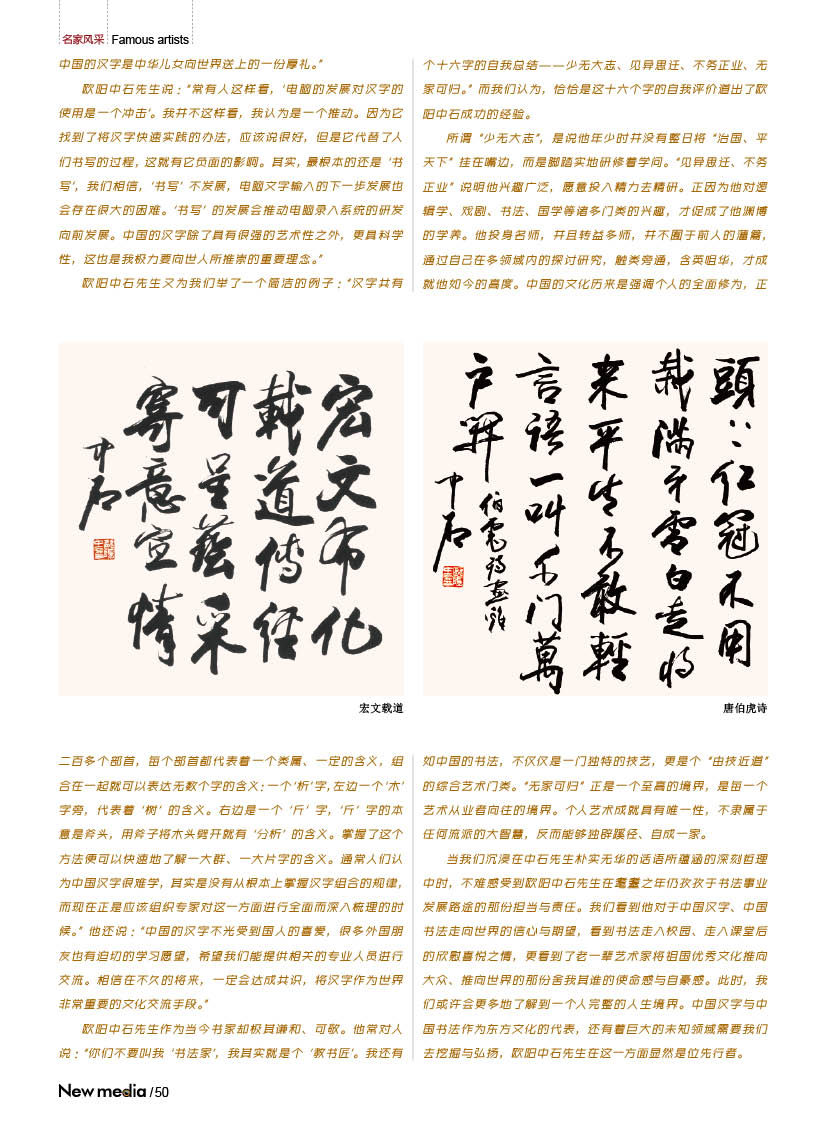 名家风采 Famous artists
中国的汉字是中华儿女向世界送上的一份厚礼。”
欧阳中石先生说：“常有人这样看，‘电脑的发展对汉字的
使用是一个冲击’。我并不这样看，我认为是一个推动。因为它
找到了将汉字快速实践的办法，应该说很好，但是它代替了人
们书写的过程，这就有它负面的影响。其实，最根本的还是‘书
写’，我们相信，‘书写’不发展，电脑文字输入的下一步发展也
会存在很大的困难。‘书写’的发展会推动电脑录入系统的研发
向前发展。中国的汉字除了具有很强的艺术性之外，更具科学
性，这也是我极力要向世人所推崇的重要理念。”
欧阳中石先生又为我们举了一个简洁的例子：“汉字共有
宏文布化
載道傳經
可呈藝采
寄意宣情
中石
宏文载道
二百多个部首，每个部首都代表着一个类属、一定的含义，组
合在一起就可以表达无数个字的含义：一个‘析’字，左边一个‘木’
字旁，代表着‘树’的含义。右边是一个‘斤’字，‘斤’字的本
意是斧头，用斧子将木头劈开就有‘分析’的含义。掌握了这个
方法便可以快速地了解一大群、一大片字的含义。通常人们认
为中国汉字很难学，其实是没有从根本上掌握汉字组合的规律，
而现在正是应该组织专家对这一方面进行全面而深入梳理的时
候。”他还说：“中国的汉字不光受到国人的喜爱，很多外国朋
友也有迫切的学习愿望，希望我们能提供相关的专业人员进行
交流。相信在不久的将来，一定会达成共识，将汉字作为世界
非常重要的文化交流手段。”
欧阳中石先生作为当今书家却极其谦和、可敬。他常对人
说：“你们不要叫我‘书法家’，我其实就是个‘教书匠’。我还有
个十六字的自我总结——少无大志、见异思迁、不务正业、无
家可归。”而我们认为，恰恰是这十六个字的自我评价道出了欧
阳中石成功的经验。
所谓“少无大志”，是说他年少时并没有整日将“治国、平
天下”挂在嘴边，而是脚踏实地研修着学问。“见异思迁、不务
正业”说明他兴趣广泛，愿意投入精力去精研。正因为他对逻
辑学、戏剧、书法、国学等诸多门类的兴趣，才促成了他渊博
的学养。他投身名师，并且转益多师，并不囿于前人的藩篱，
通过自己在多领域内的探讨研究，触类旁通，含英咀华，才成
就他如今的高度。中国的文化历来是强调个人的全面修为，正
頭上红冠不用
裁满身雪白走将
来平生不敢輕
言語一叫千门萬
户開
伯虎詩画雞
中石
唐伯虎诗
如中国的书法，不仅仅是一门独特的技艺，更是个“由技近道”
的综合艺术门类。“无家可归”正是一个至高的境界，是每一个
艺术从业者向往的境界。个人艺术成就具有唯一性，不隶属于
任何流派的大智慧，反而能够独辟蹊径、自成一家。
当我们沉浸在中石先生朴实无华的话语所蕴涵的深刻哲理
中时，不难感受到欧阳中石先生在耄耋之年仍孜孜于书法事业
发展路途的那份担当与责任。我们看到他对于中国汉字、中国
书法走向世界的信心与期望，看到书法走入校园、走入课堂后
的欣慰喜悦之情，更看到了老一辈艺术家将祖国优秀文化推向
大众、推向世界的那份舍我其谁的使命感与自豪感。此时，我
们或许会更多地了解到一个人完整的人生境界。中国汉字与中
国书法作为东方文化的代表，还有着巨大的未知领域需要我们
去挖掘与弘扬，欧阳中石先生在这一方面显然是位先行者。
New media /50